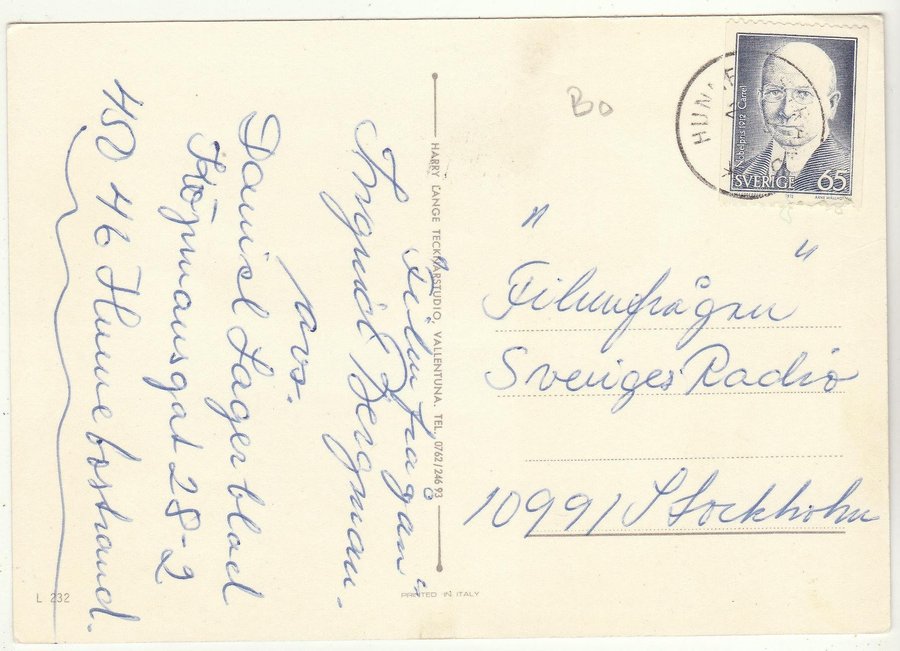 "Filmfrågan"
Ingrid Bergman.
Avs.
Daniel Lagerblad
Köpmansgat 28-2
450 46 Hunnebostrand.
HARRY LANGE TECKNARSTUDIO, VALLENTUNA. TEL. 0762/246 93
Bo
Nobelpris 1912 Carrel
SVERIGE 65
HUNN
"Filmfrågan"
Sveriges Radio
10991 Stockholm
L 232
PRINTED IN ITALY